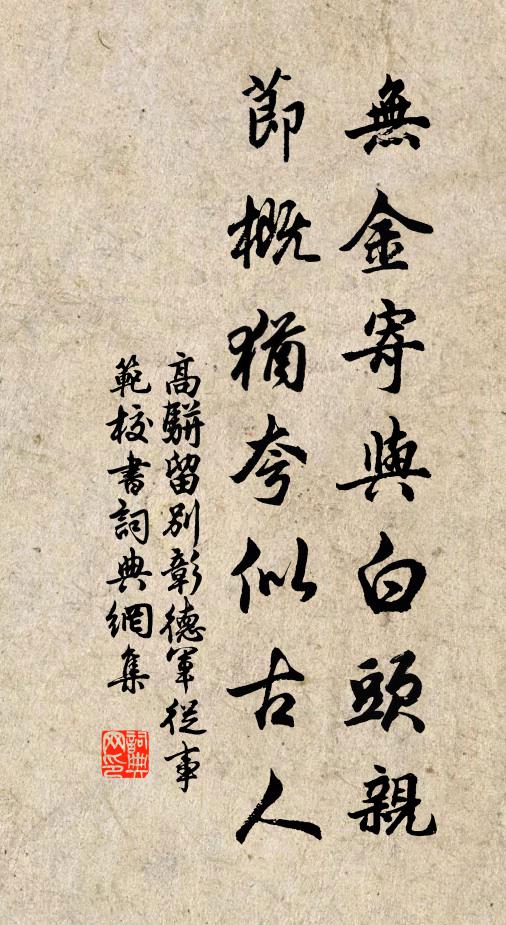 無金寄與白頭親
節概猶夸似古人
高駢留別彰德軍從事
範校書詞典網集
詞典
网印